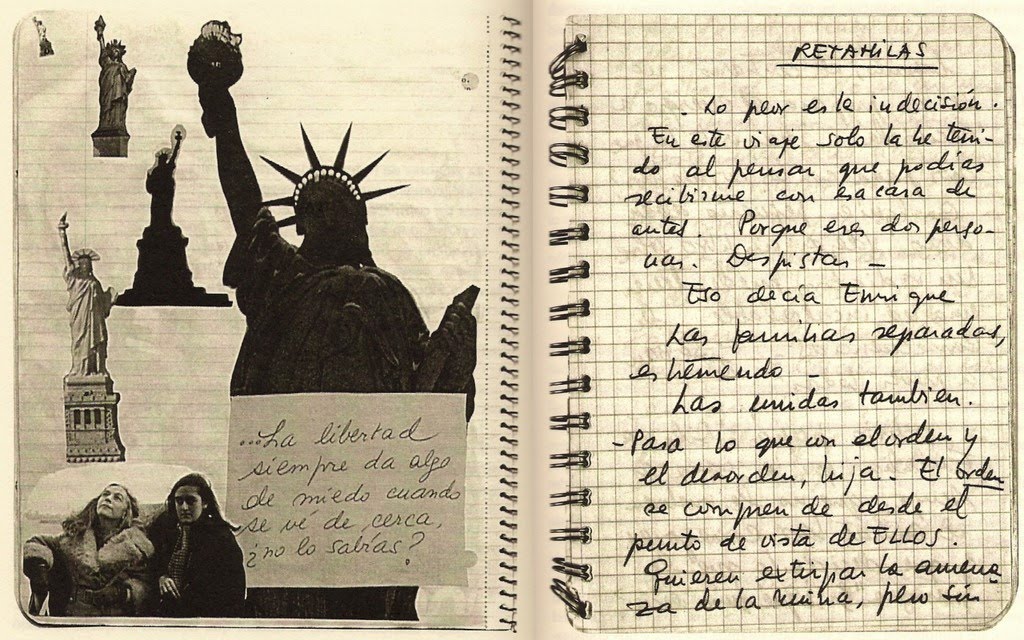 ...La libertad
siempre da algo
de miedo cuando
se vé de cerca,
¿no lo sabías?
RETAHILAS
- Lo peor es la indecisión.
En este viaje solo la he teni-
do al pensar que podías
recibirme con esa cara de
antes. Porque eres dos perso-
nas. Despistas -
Eso decía Enrique
Las familias separadas,
es tremendo -
Las unidas tambien.
- Pasa lo que con el orden y
el desorden, hija. El orden
se comprende desde el
punto de vista de ELLOS.
Quieren extirpar la amena-
za de la ruina, pero sin